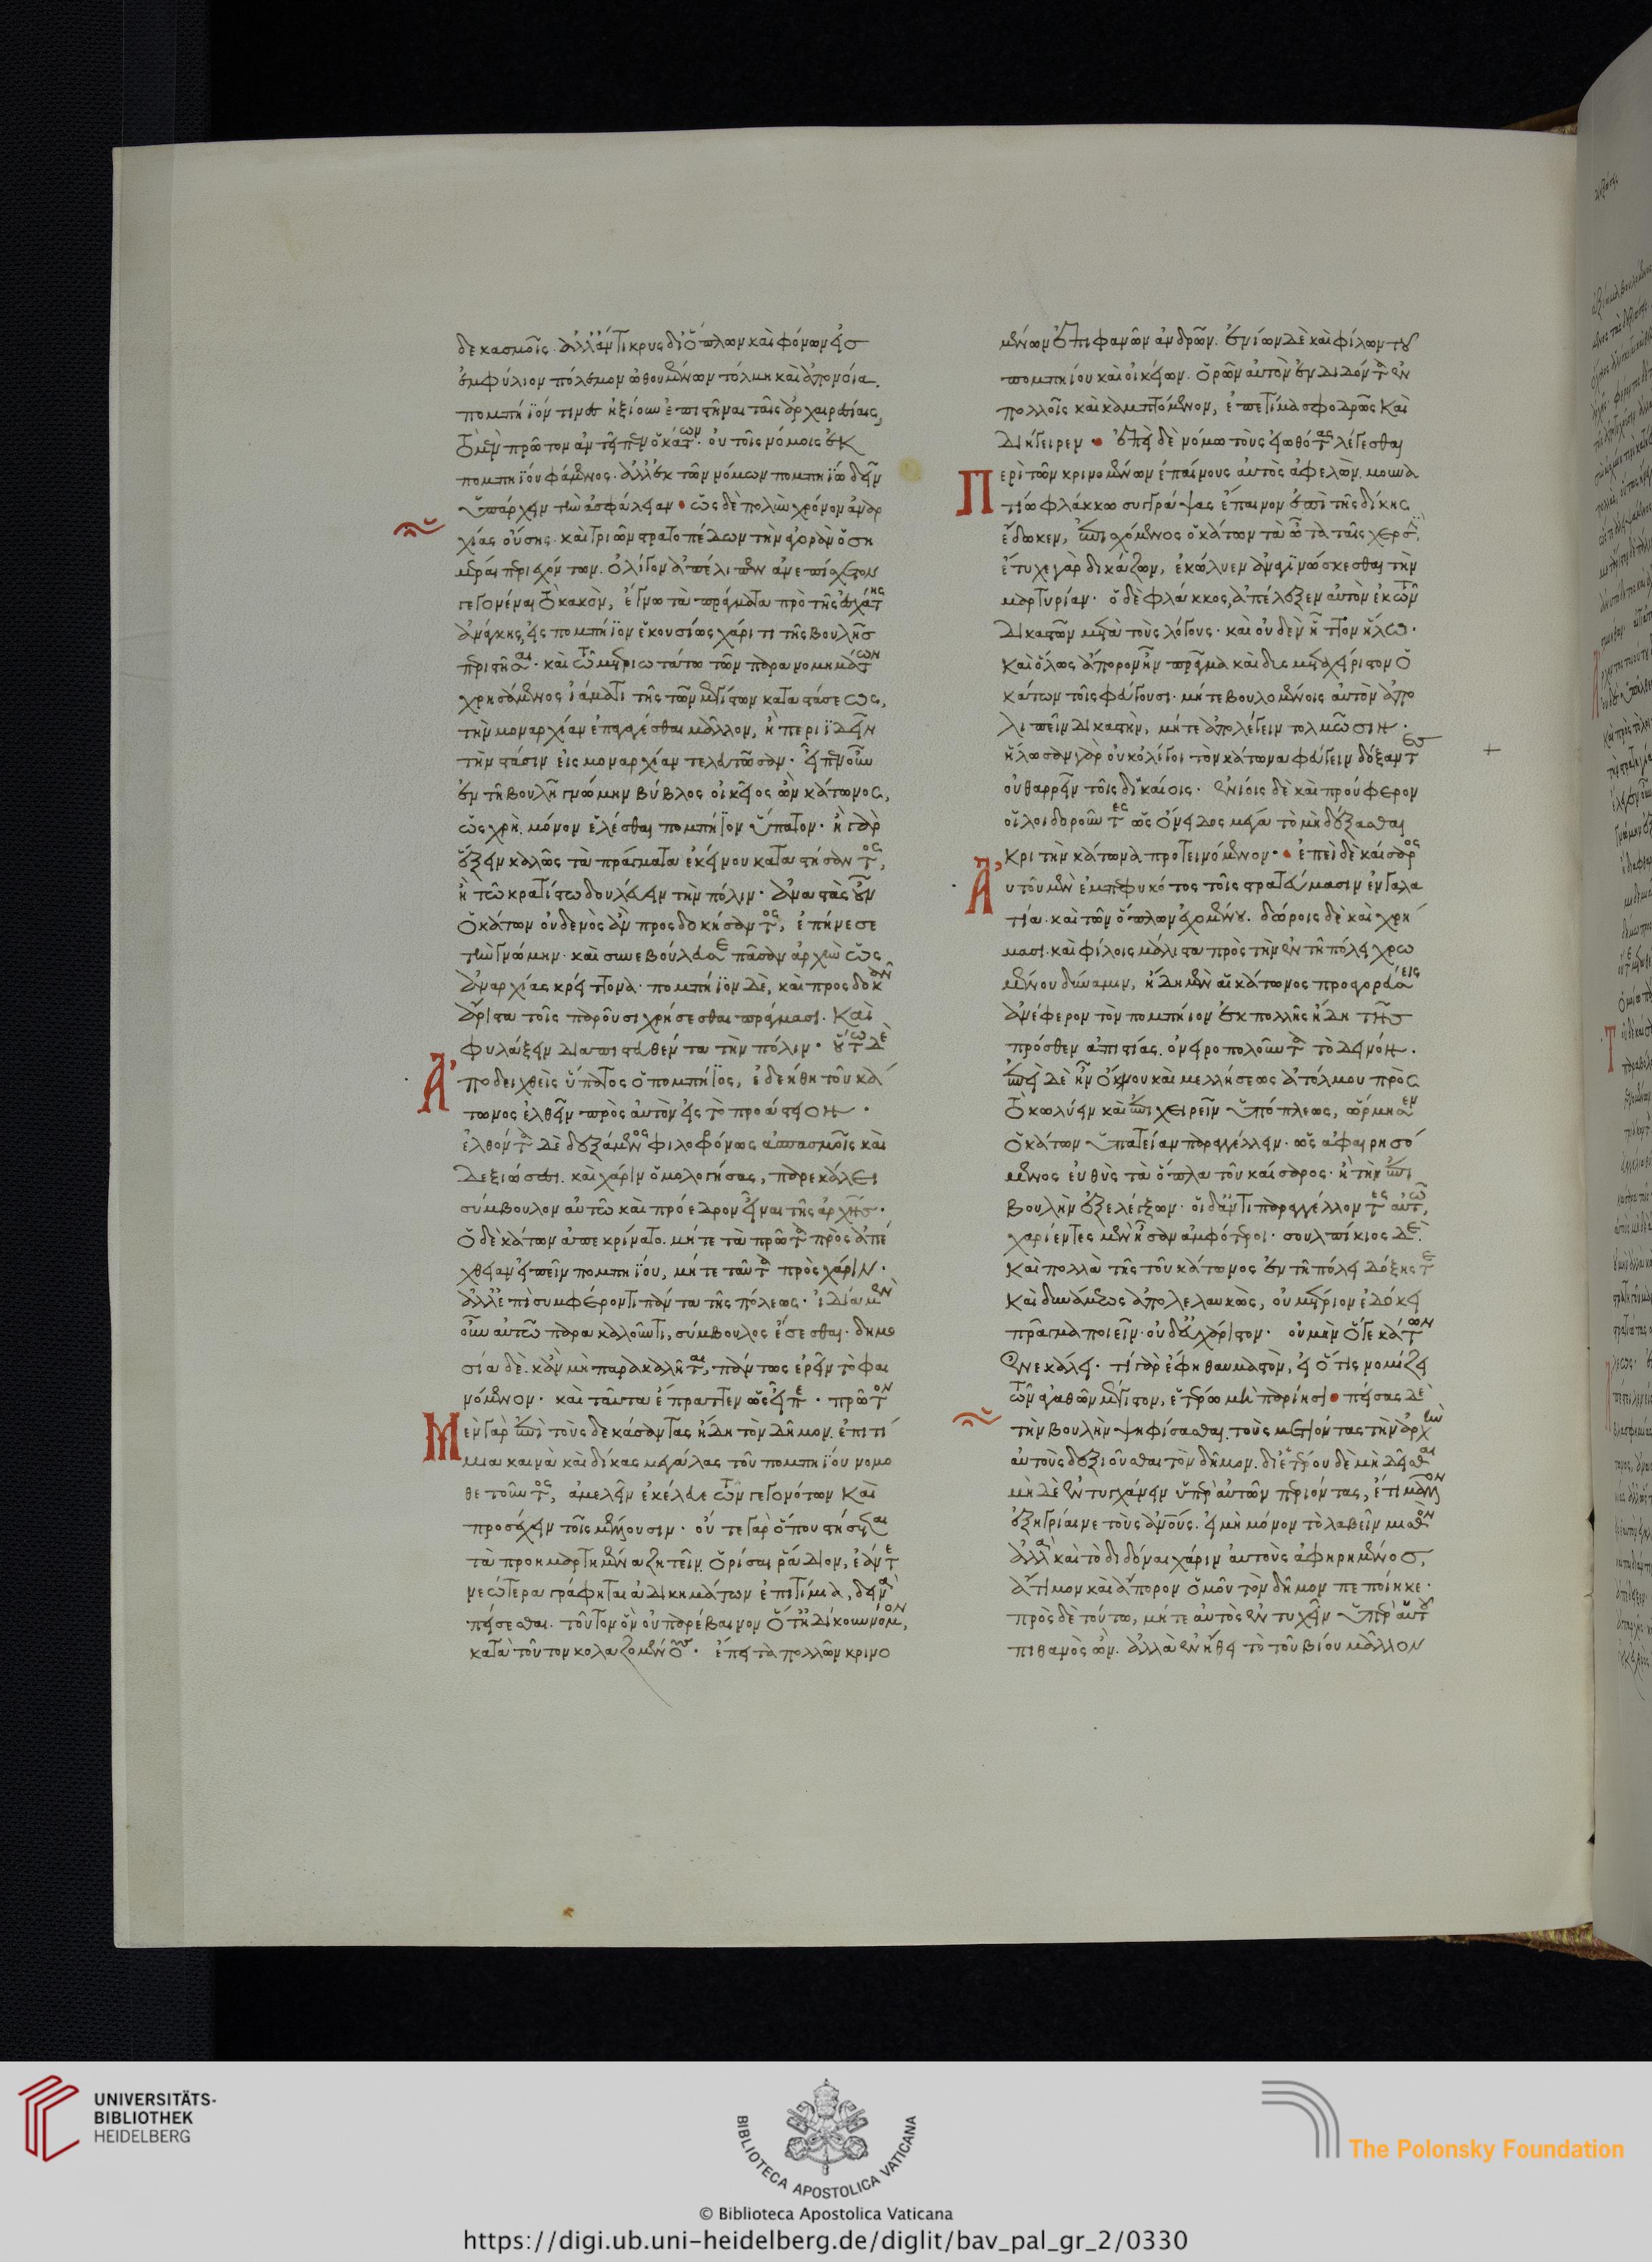 δεκασμοῖς. ἀλλ' ἄντικρυς δι' ὅπλων καὶ φόνων εἰσ
ἐμφύλιον πόλεμον ὠθουμένων τόλμη καὶ ἀπονοία.
πομπήϊόν τινες ἠξίουν ἐπιστῆναι ταῖς ἀρχαιρεσίαις,
τὸ μὲν πρῶτον ἀντεῖπεν ὁ κάτων· οὐ τοῖς νόμοις ἐκ
πομπηΐου φάμενος. ἀλλ' ἐκ τῶν νόμων πομπηΐω δεῖν
ὑπάρχειν τὴν ἀσφάλειαν • ὡς δὲ πολὺν χρόνον ἀναρ
χίας οὔσης. καὶ τριῶν στρατοπέδων τὴν ἀγορὰν ὅση
μέραι περιεχόντων. ὀλίγον ἀπέλιπεν ἀνεπίσχετον
γεγονέναι τὸ κακὸν, ἔγνω τὰ πράγματα πρὸ τῆς ἐσχάτης
ἀνάγκης, εἰς πομπήϊον ἑκουσίως χάριτι τῆς βουλῆσ
περιστῆσαι. καὶ τῶ μετριωτάτω τῶν παρανομημάτων
χρησάμενος ἰάματι τῆς τῶν μεγίστων καταστάσεως,
τὴν μοναρχίαν ἐπαγαγέσθαι μᾶλλον, ἢ περιϊδεῖν
τὴν στάσιν εἰς μοναρχίαν τελευτῶσαν. εἶπεν οὖν
ἐν τῆ βουλῆ γνώμην βύβλος οἰκεῖος ὢν κάτωνος,
ὡς χρὴ μόνον ἑλέσθαι πομπήϊον ὕπατον· ἢ γὰρ
ἕξειν καλῶς τὰ πράγματα ἐκείνου καταστήσαντος,
ἢ τῶ κρατίστω δουλεύσειν τὴν πόλιν. ἀναστὰς οὖν
ὁ κάτων οὐδενὸς ἂν προσδοκήσαντος, ἐπήνεσε
τὴν γνώμην. καὶ συνεβούλευσε πᾶσαν ἀρχὴν ὡς
ἀναρχίας κρείττονα. πομπήϊον δὲ, καὶ προσδοκᾶν
ἄριστα τοῖς παροῦσι χρήσεσθαι πράγμασι. καὶ
φυλάξειν διαπιστευθέντα τὴν πόλιν. οὕτω δὲ
Ἀποδειχθεὶς ὕπατος ὁ πομπήϊος, ἐδεήθη τοῦ κά
τωνος ἐλθεῖν πρὸς αὐτὸν εἰς τὸ προάστειον.
ἐλθόντα δὲ δεξάμενος φιλοφρόνως ἀσπασμοῖς καὶ
δεξιώσεσι. καὶ χάριν ὁμολογήσας, παρεκάλει
σύμβουλον αὐτῶ καὶ πρόεδρον εἶναι τῆς ἀρχῆσ.
ὁ δὲ κάτων ἀπεκρίνατο. μήτε τὰ πρῶτα πρὸς ἀπέ
χθειαν εἰπεῖν πομπηΐου, μήτε ταῦτα πρὸς χάριν.
ἀλλ' ἐπὶ συμφέροντι πάντα τῆς πόλεως. ἰδία μὲν
οὖν αὐτῶ παρακαλοῦντι, σύμβουλος ἔσεσθαι. δημο
σία δὲ. κἂν μὴ παρακαλῆται, πάντως ἐρεῖν τὸ φαι
νόμενον. καὶ ταῦτα ἔπραττεν ὡς εἶπε. πρῶτον
Μὲν γὰρ ἐπὶ τοὺς δεκάσαντας ἤδη τὸν δῆμον. ἐπιτί
μια καινὰ καὶ δίκας μεγάλας τοῦ πομπηΐου νομο
θετοῦντος, ἀμελεῖν ἐκέλευε τῶν γεγονότων καὶ
προσέχειν τοῖς μέλλουσιν. οὔτε γὰρ ὅπου στήσεται
τὰ προημαρτημένα ζητεῖν ὁρίσαι ῥάδιον, ἐάν τε
νεώτερα γράφηται ἀδικημάτων ἐπιτίμια, δεινὰ
πείσεσθαι. τοῦτον ὃν οὐ παρέβαινον ὅτε ἠδίκουν νόμον,
κατὰ τοῦτον κολαζομένους. ἔπειτα πολλῶν κρινο
μένων ἐπιφανῶν ἀνδρῶν. ἐνίων δὲ καὶ φίλων τοῦ
πομπηΐου καὶ οἰκείων. ὁρῶν αὐτὸν ἐνδιδόντα ἐν
πολλοῖς καὶ καμπτόμενον, ἐπετίμα σφοδρῶς καὶ
διήγειρεν • ἐπεὶ δὲ νόμω τοὺς εἰωθότας λέγεσθαι
Περὶ τῶν κρινομένων ἐπαίνους αὐτὸς ἀφελὼν. μουνα
τίω φλάκκω συγγράψας ἔπαινον ἐπὶ τῆς δίκης
ἔδωκεν, ἐπισχόμενος ὁ κάτων τὰ ὦτα ταῖς χερσὶ,
ἔτυχε γὰρ δικάζων, ἐκώλυεν ἀναγινώσκεσθαι τὴν
μαρτυρίαν. ὁ δὲ φλάκκος, ἀπέλεξεν αὐτὸν ἐκ τῶν
δικαστῶν μετὰ τοὺς λόγους. καὶ οὐδὲν ἧττον ἥλω.
καὶ ὅλως ἄπορον ἦν πρᾶγμα καὶ δυσμεταχείριστον ὁ
κάτων τοῖς φεύγουσι. μήτε βουλομένοις αὐτὸν ἀπο
λιπεῖν δικαστὴν, μήτε ἀπολέγειν τολμῶσιν.
ἥλωσαν γὰρ οὐκ ὀλίγοι τὸν κάτωνα φεύγειν δόξαντεσ
οὐ θαρρεῖν τοῖς δικαίοις. ἐνίοις δὲ καὶ προύφερον
οἱ λοιδοροῦντες ὡς ὄνειδος μέγα τὸ μὴ δέξασθαι
κριτὴν κάτωνα προτεινόμενον. • ἐπεὶ δὲ καίσαρος
Ἀυτοῦ μὲν ἐμπεφυκότος τοῖς στρατεύμασιν ἐν γαλα
τία. καὶ τῶν ὅπλων ἐχομένου. δώροις δὲ καὶ χρή
μασι. καὶ φίλοις μάλιστα πρὸς τὴν ἐν τῆ πόλει χρω
μένου δύναμιν, ἤδη μὲν αἱ κάτωνος προαγορεύσεις
ἀνέφερον τὸν πομπήϊον ἐκ πολλῆς ἤδη τῆσ
πρόσθεν ἀπιστίας. ὀνειροπολοῦντα τὸ δεινόν.
ἐπεὶ δὲ ἦν ὄκνου καὶ μελλήσεως ἀτόλμου πρὸς
τὸ κωλύειν καὶ ἐπιχειρεῖν ὑπόπλεως, ὥρμησεν
ὁ κάτων ὑπατείαν παραγγέλλειν. ὡς ἀφαιρησό
μενος εὐθὺς τὰ ὅπλα τοῦ καίσαρος. ἢ τὴν ἐπι
βουλὴν ἐξελέγξων. οἱ δ' ἀντιπαραγγέλλοντες αὐτῶ,
χαρίεντες μὲν ἦσαν ἀμφότεροι. σουλπίκιος δὲ
καὶ πολλὰ τῆς τοῦ κάτωνος ἐν τῆ πόλει δόξης τε
καὶ δυνάμεως ἀπολελαυκὼς, οὐ μέτριον ἐδόκει
πρᾶγμα ποιεῖν. οὐδ' ἀχάριστον. οὐ μὴν ὅγε κάτων
ἐνεκάλει. τί γὰρ ἔφη θαυμαστὸν, εἰ ὅ τις νομίζει
τῶν ἀγαθῶν μέγιστον, ἑτέρω μὴ παρίησι • πείσας δὲ
τὴν βουλὴν ψηφίσασθαι. τοὺς μετιόντας τὴν ἀρχὴν
αὐτοὺς δεξιοῦσθαι τὸν δῆμον. δι' ἑτέρου δὲ μὴ δεῖσθαι
μὴ δὲ ἐντυγχάνειν ὑπὲρ αὐτῶν περιόντας, ἔτι μᾶλλον
ἐξηγρίαινε τοὺς ἀνθρώπους. εἰ μὴ μόνον τὸ λαβεῖν μισθὸν
ἀλλὰ καὶ τὸ διδόναι χάριν αὐτοὺς ἀφηρημένοσ,
ἄτιμον καὶ ἄπορον ὁμοῦ τὸν δῆμον πεποίηκε.
πρὸς δὲ τούτω, μήτε αὐτὸς ἐντυχεῖν ὑπὲρ αὑτοῦ
πιθανὸς ὢν. ἀλλὰ ἐν ἤθει τὸ τοῦ βίου μᾶλλον
UNIVERSITÄTS-
BIBLIOTHEK
HEIDELBERG
BIBLIOTECA APOSTOLICA VATICANA
The Polonsky Foundation
© Biblioteca Apostolica Vaticana
https://digi.ub.uni-heidelberg.de/diglit/bav_pal_gr_2/0330